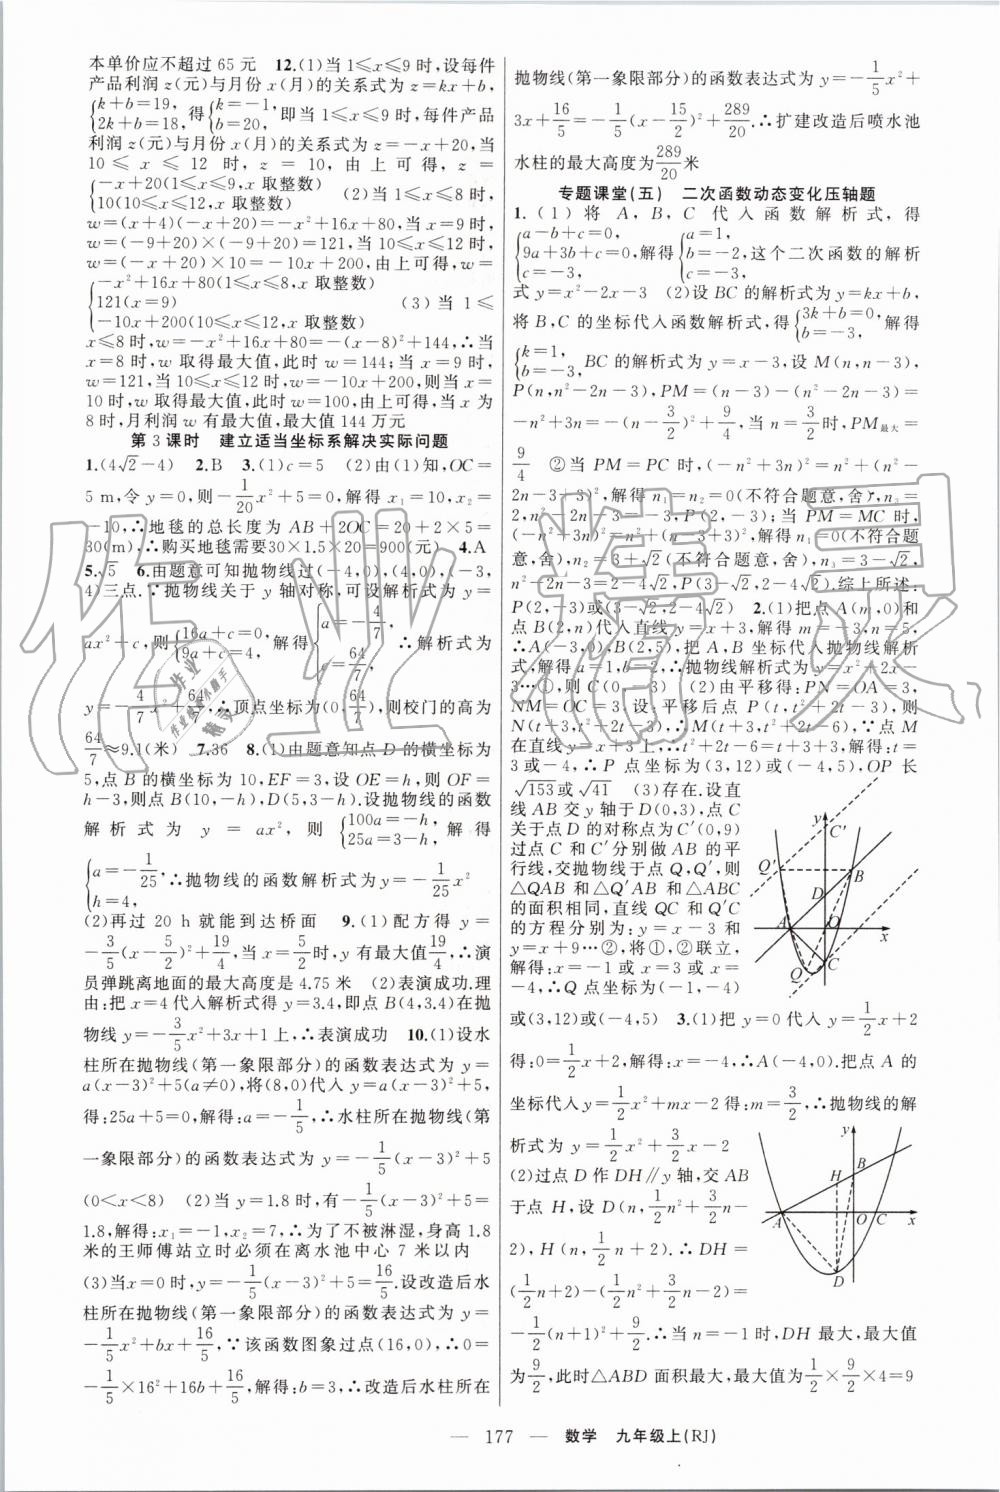 本单价应不超过 65 元　12.(1)当 1≤x≤9 时,设每件
产品利润 z(元)与月份 x(月)的关系式为 z=kx+b,
{k+b=19, 2k+b=18, 得{k=-1, b=20, 即当 1≤x≤9 时,每件产品
利润 z(元)与月份 x(月)的关系式为 z=-x+20,当
10 ≤ x ≤ 12 时, z = 10, 由上可得, z =
{-x+20(1≤x≤9,x 取整数) 10(10≤x≤12,x 取整数)　(2)当 1≤x≤8 时,
w=(x+4)(-x+20)=-x²+16x+80,当 x=9 时,
w=(-9+20)×(-9+20)=121,当 10≤x≤12 时,
w=(-x+20)×10=-10x+200,由上可得,w=
{-x²+16x+80(1≤x≤8,x 取整数) 121(x=9) -10x+200(10≤x≤12,x 取整数)　(3)当 1≤
x≤8 时,w=-x²+16x+80=-(x-8)²+144,∴当
x=8 时,w 取得最大值,此时 w=144;当 x=9 时,
w=121,当 10≤x≤12 时,w=-10x+200,则当 x=
10 时,w 取得最大值,此时 w=100,由上可得,当 x 为
8 时,月利润 w 有最大值,最大值 144 万元
第 3 课时　建立适当坐标系解决实际问题
1.(4√2-4)　2.B　3.(1)c=5　(2)由(1)知,OC=
5 m,令 y=0,则-1/20x²+5=0,解得 x₁=10,x₂=
-10,∴地毯的总长度为 AB+2OC=20+2×5=
30(m),∴购买地毯需要30×1.5×20=900(元)　4.A
5.√5　6.由题意可知抛物线过(-4,0),(4,0),(-3,
4)三点.∵抛物线关于 y 轴对称,可设解析式为 y=
ax²+c,则{16a+c=0, 9a+c=4, 解得{a=-4/7, c=64/7, ∴解析式为
y=-4/7x²+64/7,∴顶点坐标为(0,64/7),则校门的高为
64/7≈9.1(米)　7.36　8.(1)由题意知点 D 的横坐标为
5,点 B 的横坐标为 10,EF=3,设 OE=h,则 OF=
h-3,则点 B(10,-h),D(5,3-h).设抛物线的函数
解析式为 y = ax², 则 {100a=-h, 25a=3-h, 解得
{a=-1/25, h=4, ∴抛物线的函数解析式为 y=-1/25x²
(2)再过 20 h 就能到达桥面　9.(1)配方得 y=
-3/5(x-5/2)²+19/4,当 x=5/2时,y 有最大值19/4,∴演
员弹跳离地面的最大高度是 4.75 米　(2)表演成功.理
由:把 x=4 代入解析式得 y=3.4,即点 B(4,3.4)在抛
物线 y=-3/5x²+3x+1 上,∴表演成功　10.(1)设水
柱所在抛物线(第一象限部分)的函数表达式为 y=
a(x-3)²+5(a≠0),将(8,0)代入 y=a(x-3)²+5,
得:25a+5=0,解得:a=-1/5,∴水柱所在抛物线(第
一象限部分)的函数表达式为 y=-1/5(x-3)²+5
(0<x<8)　(2)当 y=1.8 时,有-1/5(x-3)²+5=
1.8,解得:x₁=-1,x₂=7,∴为了不被淋湿,身高 1.8
米的王师傅站立时必须在离水池中心 7 米以内
(3)当 x=0 时,y=-1/5(x-3)²+5=16/5.设改造后水
柱所在抛物线(第一象限部分)的函数表达式为 y=
-1/5x²+bx+16/5,∵该函数图象过点(16,0),∴0=
-1/5×16²+16b+16/5,解得:b=3,∴改造后水柱所在
抛物线(第一象限部分)的函数表达式为 y=-1/5x²+
3x+16/5=-1/5(x-15/2)²+289/20.∴扩建改造后喷水池
水柱的最大高度为289/20米
专题课堂(五)　二次函数动态变化压轴题
1.(1)将 A, B, C 代入函数解析式,得
{a-b+c=0, 9a+3b+c=0, c=-3, 解得{a=1, b=-2, c=-3, 这个二次函数的解析
式 y=x²-2x-3　(2)设 BC 的解析式为 y=kx+b,
将 B,C 的坐标代入函数解析式,得{3k+b=0, b=-3, 解得
{k=1, b=-3, BC 的解析式为 y=x-3,设 M(n,n-3),
P(n,n²-2n-3),PM=(n-3)-(n²-2n-3)=
-n²+3n=-(n-3/2)²+9/4,当 n=3/2时,PM最大=
9/4　②当 PM=PC 时,(-n²+3n)²=n²+(n²-
2n-3+3)²,解得 n₁=n₂=0(不符合题意,舍),n₃=
2,n²-2n-3=-3,P(2,-3);当 PM=MC 时,
(-n²+3n)²=n²+(n-3+3)²,解得 n₁=0(不符合
题意,舍),n₂=3+√2(不符合题意,舍),n₃=3-√2,
n²-2n-3=2-4√2,P(3-√2,2-4√2).综上所述:
P(2,-3)或(3-√2,2-4√2)　2.(1)把点 A(m,0)和
点 B(2,n)代入直线 y=x+3,解得 m=-3,n=5,
∴A(-3,0),B(2,5),把 A,B 坐标代入抛物线解析
式,解得 a=1,b=2,∴抛物线解析式为 y=x²+2x-
3…①,则 C(0,-3)　(2)由平移得:PN=OA=3,
NM=OC=3,设:平移后点 P(t,t²+2t-3),则
N(t+3,t²+2t-3),∴M(t+3,t²+2t-6),∵点 M
在直线 y=x+3 上,∴t²+2t-6=t+3+3,解得:t=
3或-4,∴P 点坐标为(3,12)或(-4,5),OP 长
√153或√41　(3)存在.设直
线 AB 交 y 轴于 D(0,3),点 C
关于点 D 的对称点为 C′(0,9)
过点 C 和 C′分别做 AB 的平
行线,交抛物线于点 Q,Q′,则
△QAB 和△Q′AB 和△ABC
的面积相同,直线 QC 和 Q′C
的方程分别为:y=x-3 和
y=x+9…②,将①,②联立,
解得:x=-1 或 x=3 或 x=
-4,∴Q 点坐标为(-1,-4)
或(3,12)或(-4,5)　3.(1)把 y=0 代入 y=1/2x+2
得:0=1/2x+2,解得:x=-4,∴A(-4,0).把点 A 的
坐标代入 y=1/2x²+mx-2 得:m=3/2,∴抛物线的解
析式为 y=1/2x²+3/2x-2
(2)过点 D 作 DH∥y 轴,交 AB
于点 H,设 D(n,1/2n²+3/2n-
2),H(n,1/2n+2).∴DH=
(1/2n+2)-(1/2n²+3/2n-2)=
-1/2(n+1)²+9/2.∴当 n=-1 时,DH 最大,最大值
为9/2,此时△ABD 面积最大,最大值为1/2×9/2×4=9
y C′ Q′ B D A O x C Q
y B H A O C x D
— 177 —　数学　九年级上(RJ)
作业精灵